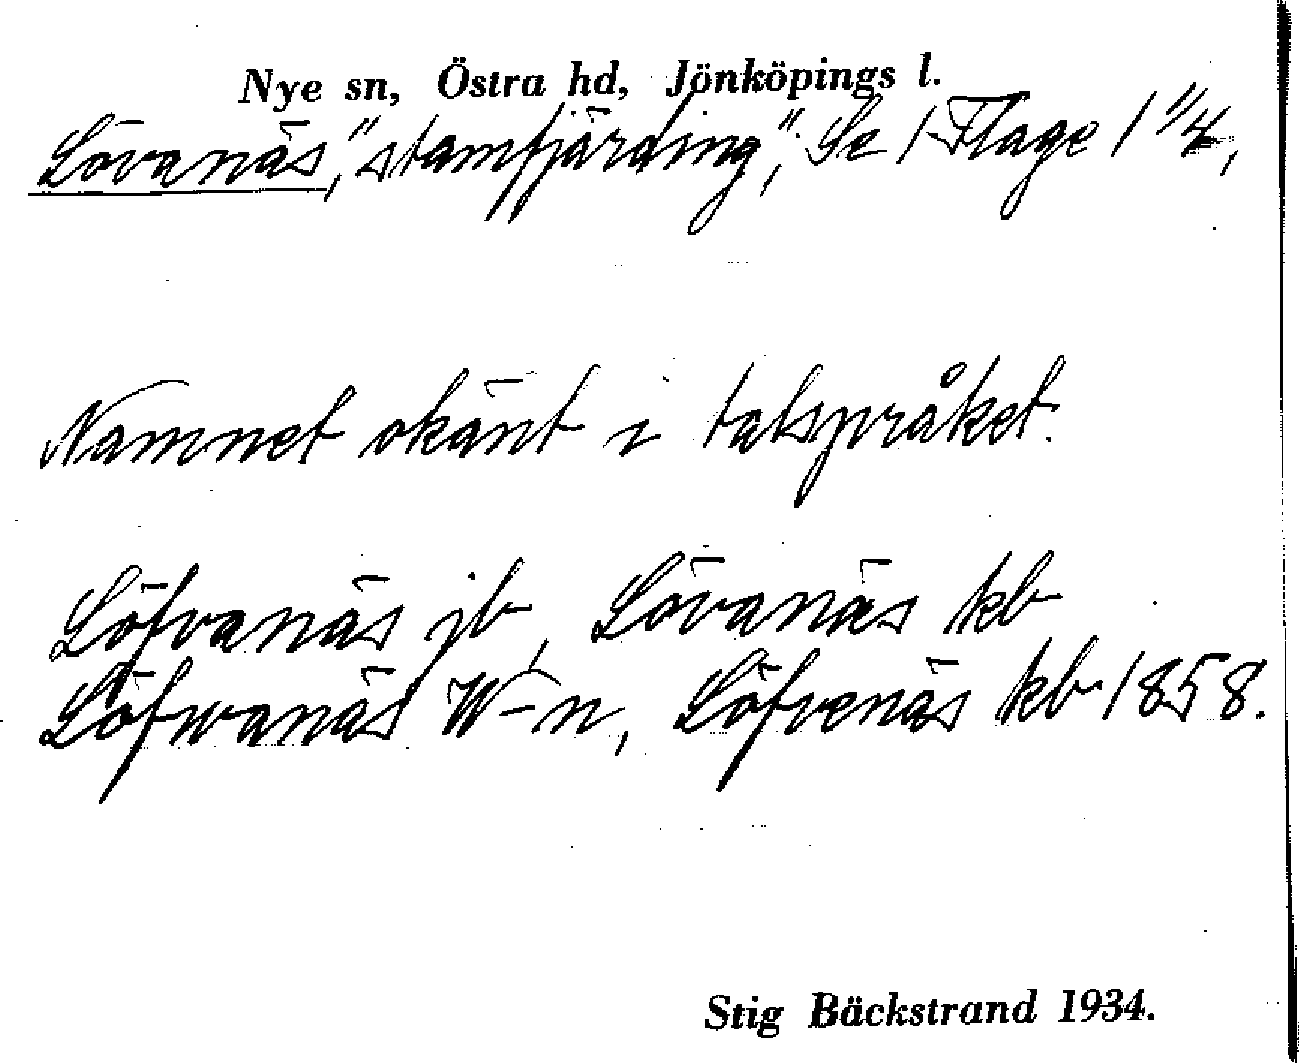 Nye sn, Östra hd, Jönköpings l.
Lövanäs, "stamfjärding", Se 1 Flage 1 1/4,
Namnet okänt i talspråket.
Löfvanäs jb, Lövanäs kb
Löfwanäs W-n, Löfvenäs kb 1858.
Stig Bäckstrand 1934.